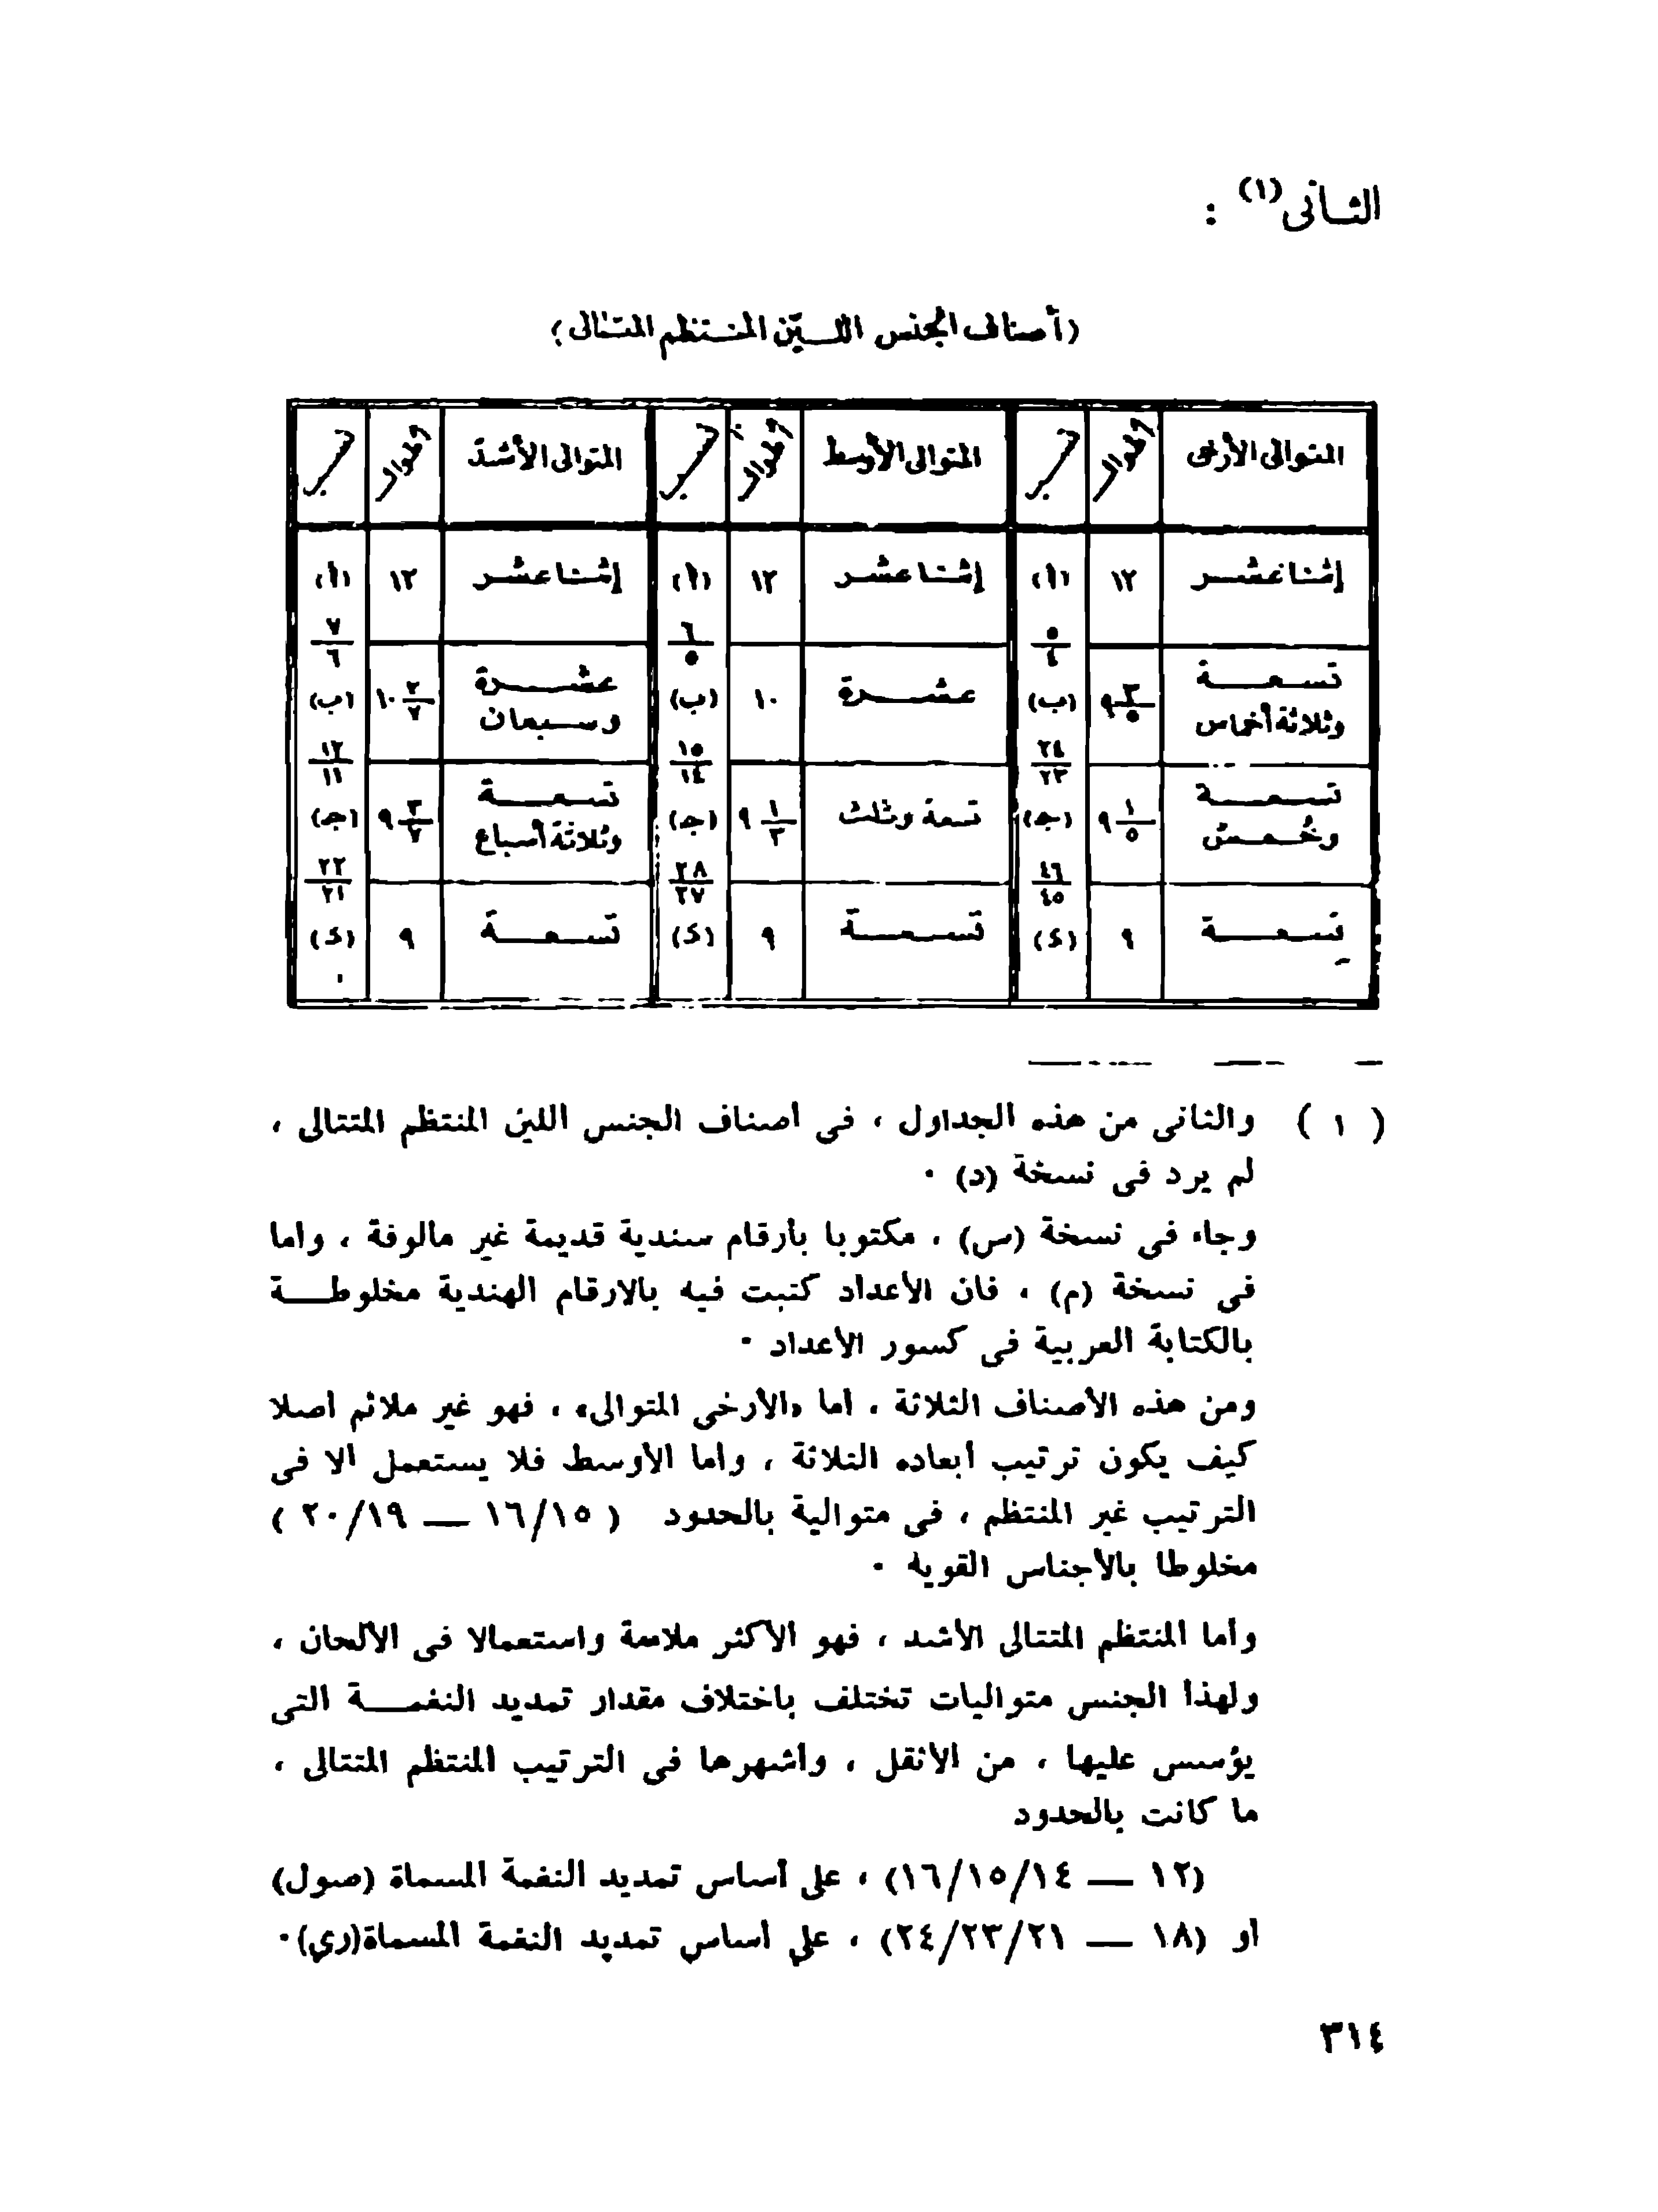 الثانى(١) :
(أصناف الجنس اللـــيّن المنــتظم المتتالى)
المتوالى الأرخى | أطوال | نسب | المتوالى الأوسط | أطوال | نسب | المتوالى الأشدّ | أطوال | نسب
إثنا عشــر | ١٢ | (أ) | إثنا عشــر | ١٢ | (أ) | إثنا عشــر | ١٢ | (أ)
٥/٤ | ٦/٥ | ٧/٦
تســعــــة وثلاثة أخماس | ٩ ٣/٥ | (ب) | عشــــرة | ١٠ | (ب) | عشــــرة وســبعان | ١٠ ٢/٧ | (ب)
٢٤/٢٣ | ١٥/١٤ | ١٢/١١
تســعــــة وخُــمــسٌ | ٩ ١/٥ | (جـ) | تسعة وثلث | ٩ ١/٣ | (جـ) | تســعــــة وثلاثة أسباع | ٩ ٣/٧ | (جـ)
٤٦/٤٥ | ٢٨/٢٧ | ٢٢/٢١
تســعــــة | ٩ | (د) | تســعــــة | ٩ | (د) | تســعــــة | ٩ | (د)
( ١ ) والثانى من هذه الجداول ، فى أصناف الجنس اللين المنتظم المتتالى ،
لم يرد فى نسخة (د) ٠
وجاء فى نسخة (س) ، مكتوبا بأرقام سندية قديمة غير مالوفة ، وأما
فى نسخة (م) ، فان الأعداد كتبت فيه بالارقام الهندية مخلوطــــة
بالكتابة العربية فى كسور الأعداد ٠
ومن هذه الأصناف الثلاثة ، أما «الأرخى المتوالى» ، فهو غير ملائم أصلا
كيف يكون ترتيب أبعاده الثلاثة ، وأما الأوسط فلا يستعمل الا فى
الترتيب غير المنتظم ، فى متوالية بالحدود ( ١٦/١٥ — ٢٠/١٩ )
مخلوطا بالأجناس القوية ٠
وأما المنتظم المتتالى الأشد ، فهو الأكثر ملاءمة واستعمالا فى الألحان ،
ولهذا الجنس متواليات تختلف باختلاف مقدار تمديد النغمــــة التى
يؤسس عليها ، من الأثقل ، وأشهرها فى الترتيب المنتظم المتتالى ،
ما كانت بالحدود
(١٢ — ١٦/١٥/١٤) ، على أساس تمديد النغمة المسماة (صول)
أو (١٨ — ٢٤/٢٣/٢١) ، على أساس تمديد النغمة المسماة(ري)٠
٣١٤